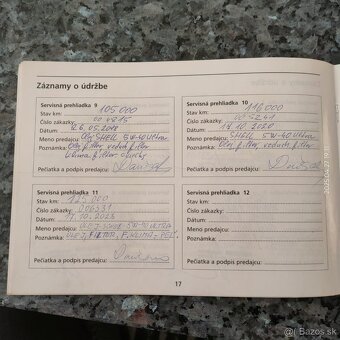 Záznamy o údržbe
Servisná prehliadka 9
Stav km: 105 000
Číslo zákazky: 00 4815
Dátum: 26.05.2018
Meno predajcu: Olej SHELL 5W-40 Ultra
Poznámka: Olej. filter, vzduch. filter
Pečiatka a podpis predajcu:
Servisná prehliadka 10
Stav km: 116 000
Číslo zákazky: 00 5241
Dátum: 17.10.2020
Meno predajcu: Olej SHELL 5W-40 Ultra
Poznámka: Olej. filter, vzduch. filter
Pečiatka a podpis predajcu:
Servisná prehliadka 11
Stav km: 125 000
Číslo zákazky: 006331
Dátum: 17.10.2023
Meno predajcu: OLEJ SHELL 5W-40 ULTRA
Poznámka: OLEJ. FILTER, F. KLIMA, PEĽ.
Pečiatka a podpis predajcu:
Servisná prehliadka 12
Stav km:
Číslo zákazky:
Dátum:
Meno predajcu:
Poznámka:
Pečiatka a podpis predajcu:
17
bazos.sk